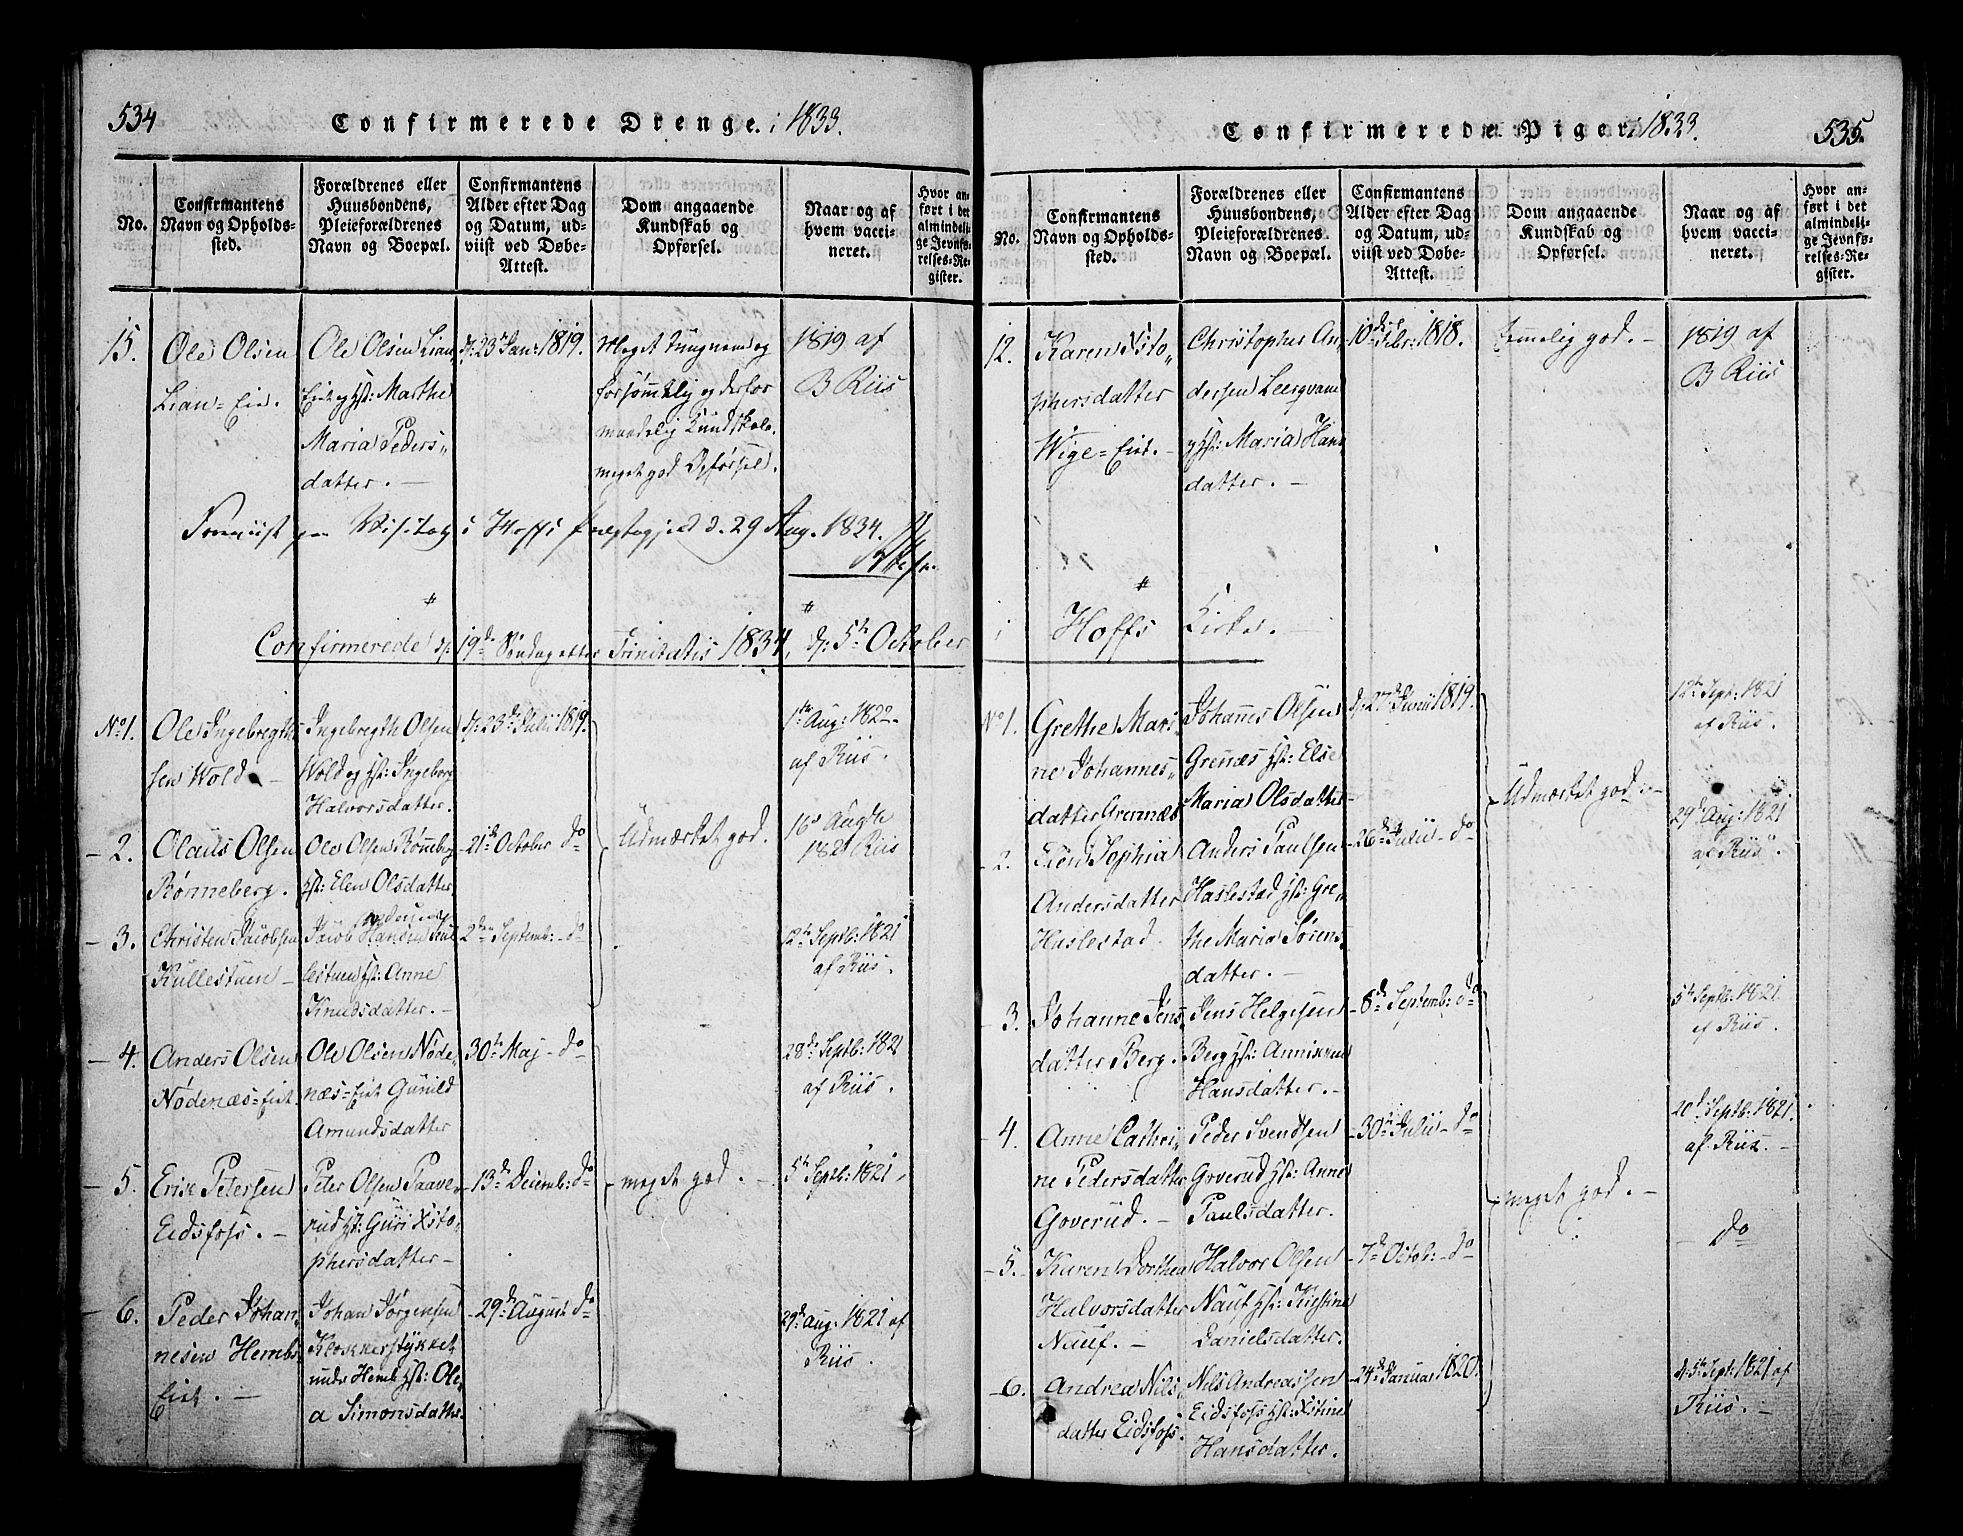 534
Confirmerede Drenge. i 1833.
No.
Confirmantens
Navn og Opholds-
sted.
Forældrenes eller
Huusbondens,
Pleieforældrenes
Navn og Boepæl.
Confirmantens
Alder efter Dag
og Datum, ud-
viist ved Døbe-
Attest.
Dom angaaende
Kundskab og
Opførsel.
Naar og af
hvem vacci-
neret.
Hvor an-
ført i det
almindeli-
ge Jevnfø-
relses-Re-
gister.
15.
Ole Olsen
Lian-Eie.
Ole Olsen Lian
Eie og Hst: Marthe
Maria Peders-
datter. –
d: 23d Jan: 1819.
Meget tungnem og
forsømmelig og derfor
maadelig Kundskab.
meget god Opførsel.
1819 af
B Riis
Foreviist paa Visitats i Hoffs Præstegjeld d. 29 Aug. 1834.
Confirmerede d: 19de Søndag efter Trinitatis 1834, d: 5te October
No 1.
Ole Ingebregth-
sen Wold –
Ingebregth Olsen
Wold og Hst: Ingeborg
Halvorsdatter.
d: 23de Julii 1819.
1te Aug: 1822
af Riis.
– 2.
Olaus Olsen
Rønneberg.
Ole Olsen Rønneberg
Hst: Elen Olsdatter
– 21de October do
Udmærket god.
16de Aug
1821 Riis
– 3.
Christen Jacobsen
Kullestuen –
Jacob Hansen Kul-
lestuen Hst: Anne
Knudsdatter. –
– 2den Septemb: – do
12te Septb: 1821
af Riis.
– 4.
Anders Olsen
Nødenæs-Eiet.
Ole Olsen Nøde-
næs-Eiet Gunild
Amundsdatter
30te Maj – do
28de Septb: 1821
af Riis.
– 5.
Erik Petersen
Eidsfoss. –
Peter Olsen Paave-
rud Hst: Guri Xsto-
phersdatter –
– 13de Decemb: do
meget god. –
5te Septb: 1821.
– 6.
Peder Johan-
nesen Hembs-
Eiet. –
Johan Jørgensen
Klokkerstykket
under Hemb Hst: Ole-
a Simonsdatter
– 29de August do
29de Aug: 1821 af
Riis.
Confirmerede Piger i 1833.
535.
No.
Confirmantens
Navn og Opholds-
sted.
Forældrenes eller
Huusbondens,
Pleieforældrenes
Navn og Boepæl.
Confirmantens
Alder efter Dag
og Datum, ud-
viist ved Døbe-
Attest.
Dom angaaende
Kundskab og
Opførsel.
Naar og af
hvem vacci-
neret.
Hvor an-
ført i det
almindeli-
ge Jevnfø-
relses-Re-
gister.
12.
Karen Xsto-
phersdatter
Wige-Eiet. –
Christopher An-
dersen Leergvam
Hst: Maria Hans
datter. –
10de Febr: 1818.
temmelig god. –
1819 af
B Riis
i Hoffs Kirke. –
No 1.
Grethe Mari-
ne Johannes-
datter Grennæs
Johannes Olsen
Grenæs Hst: Else
Maria Olsdatter
d: 27de Junii 1819.
Udmærket god. –
12te Sept: 1821
af Riis.
– 2.
Elen Sophia
Andersdatter
Haslestad
Anders Paulsen
Haslestad Hst: Gre-
the Maria Sørens-
datter. –
– 26de Julii – do
29de Aug: 1821
af Riis.
– 3.
Johanne Jens-
datter Berg.
Jens Helgesen
Berg Hst: Anniken
Hansdatter. –
– 8de Septemb: do
5te Septb: 1821
af Riis.
– 4.
Anne Cathri-
ne Pedersdatter
Goverud. –
Peder Svendsen
Goverud Hst: Anne
Paulsdatter.
– 30te Julii – do
meget god. –
20de Septb: 1821.
af Riis. –
– 5.
Karen Dorthea
Halvorsdatter
Nauf. –
Halvor Olsen
Nauf Hst: Kirstine
Danielsdatter.
– 7de Octob: – do
– do
– 6.
Andrea Nils-
datter Eidsfoss.
Nils Andreassen
Eidsfoss Hst: Xstine
Hansdatter.
– 24de Januar 1820.
5te Sept: 1821 af
Riis. –